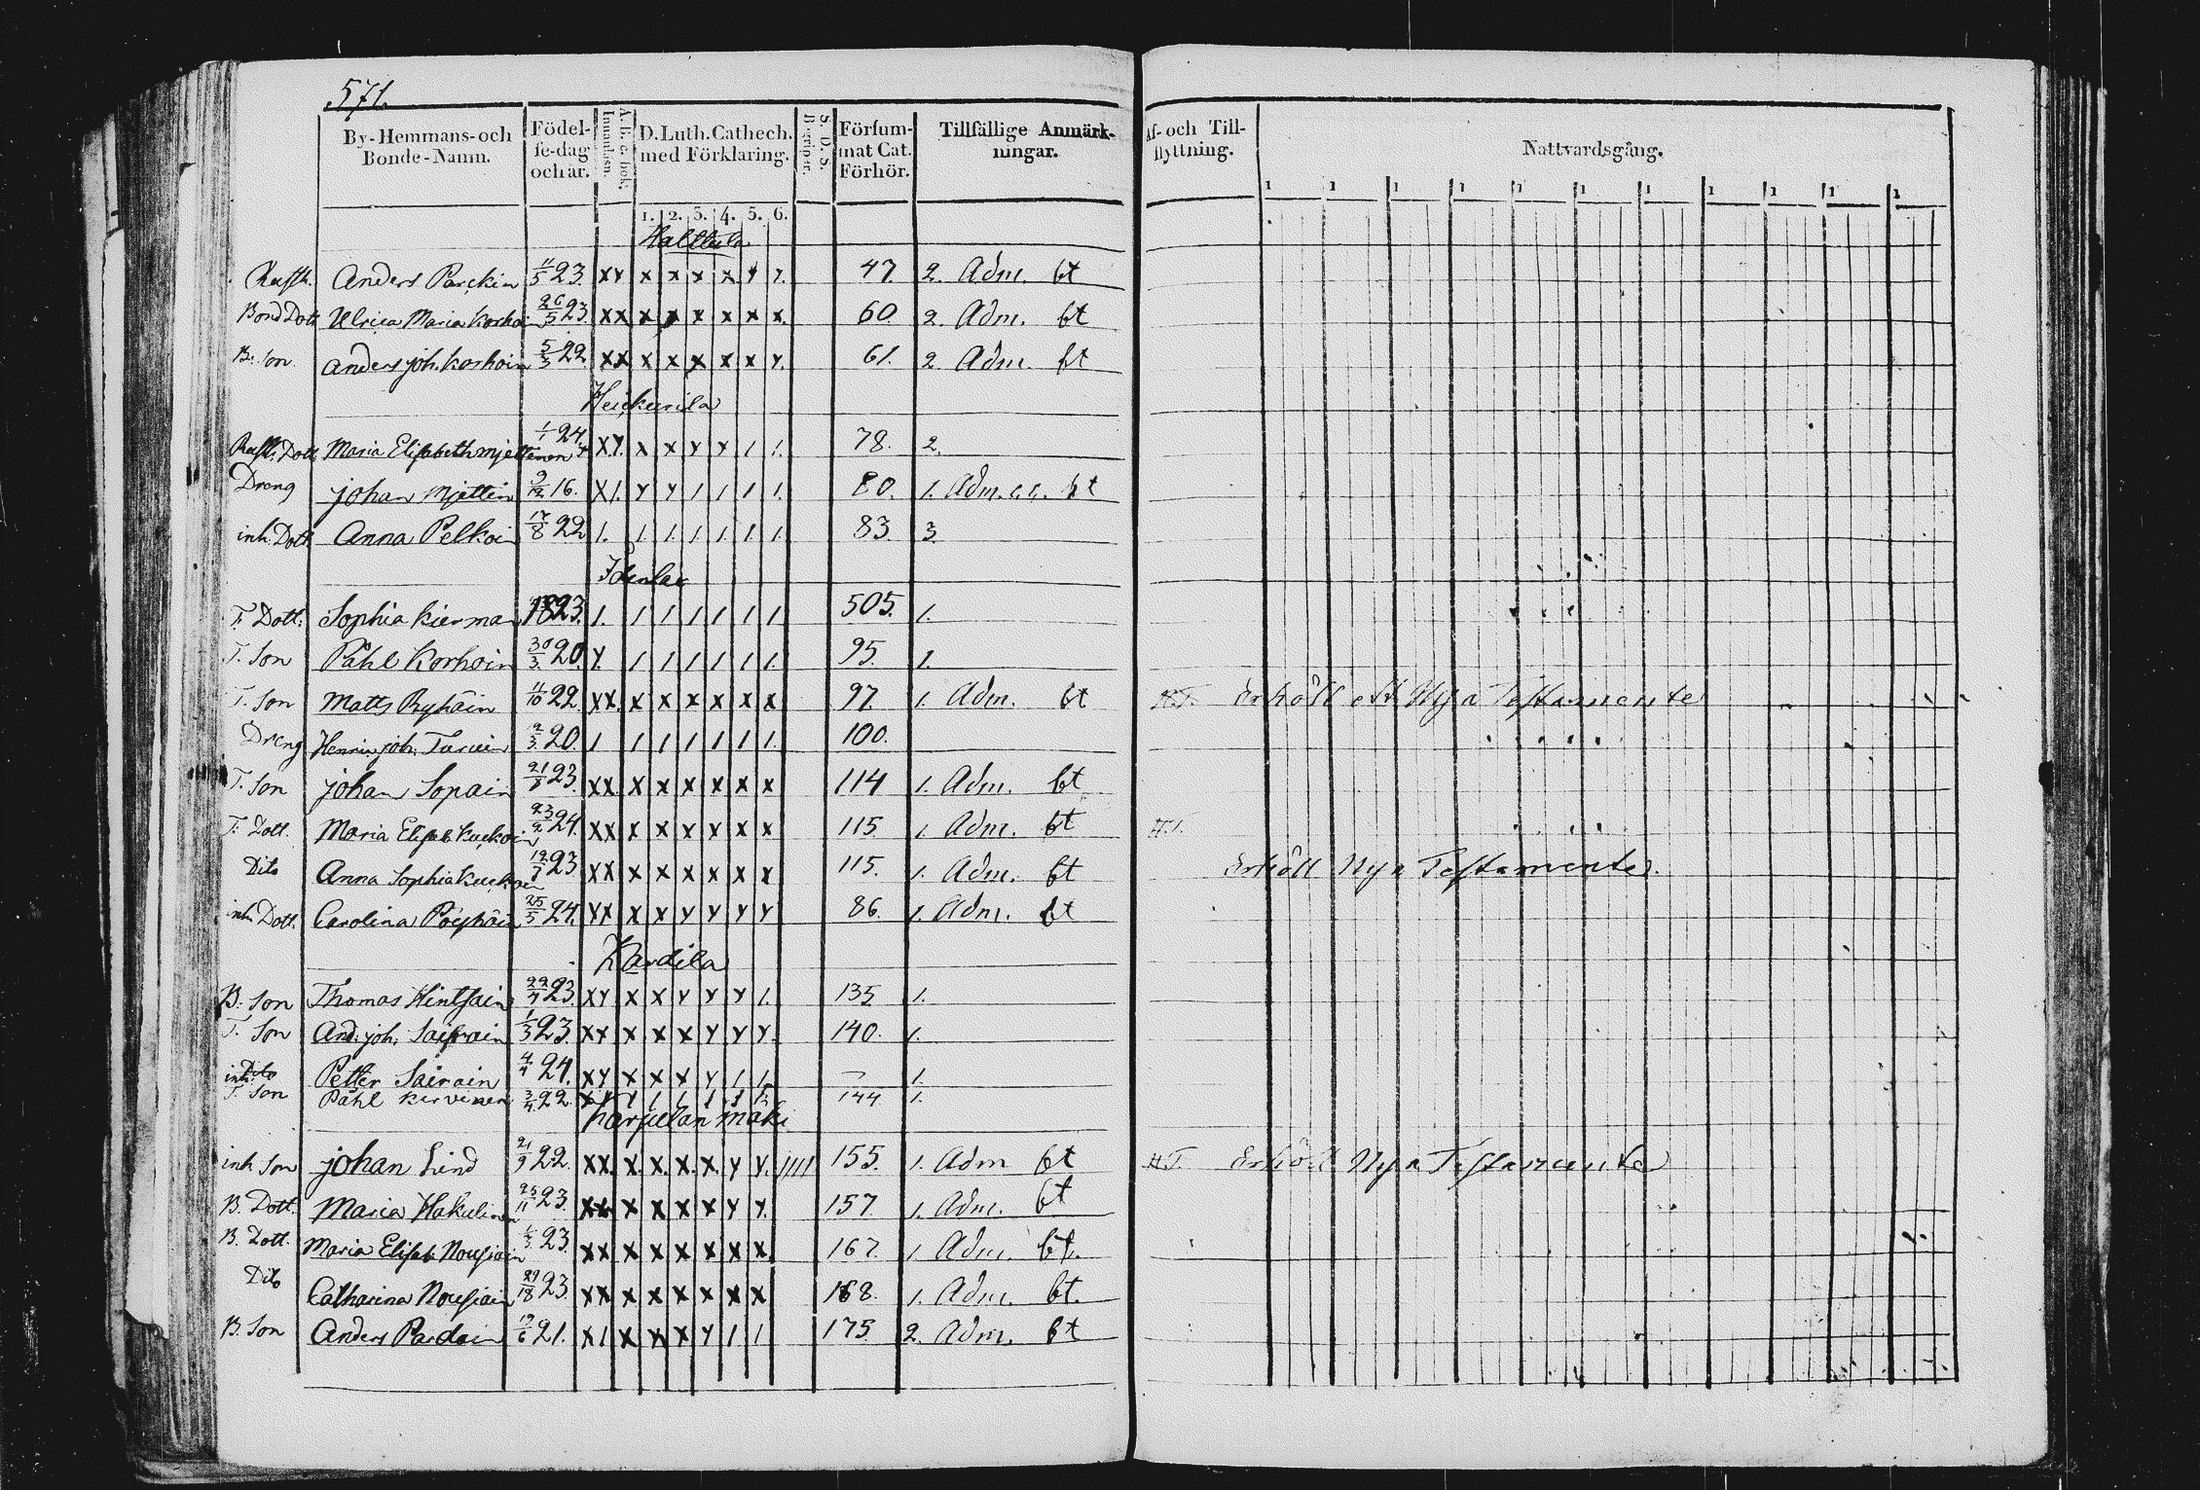 571.
By-Hemmans-och Bonde-Namn. Födel-se-dag och år. A. B. c. bok. Innanläsn. D. Luth. Cathech. med Förklaring. S. D. S. Begrepp. Försum-mat Cat. Förhör. Tillfällige Anmärk-ningar. Af- och Till-flyttning. Nattvardsgång.
1. 2. 3. 4. 5. 6. 1 1 1 1 1 1 1 1 1 1 1
Halttula
Anders Parckin 11/5 23. x x x x x x y y. 47. 2. Adm. bt
Bond Dott Ulrica Maria Korhoin 26/5 23. x x x x x x x x. 60. 2. Adm. bt
B. Son Anders Joh. Korhoin 5/3 22. x x x x x x x y. 61. 2. Adm. bt
Heickurila
Dott Maria Elisabeth Mjettinen 1/1 24. x y. x x y y 1 1. 78. 2.
Dreng Johan Mjettin 9/12 16. x 1. y y 1 1 1 1. 80. 1. Adm. bt
inh. Dott Anna Pelkoin 17/8 22 1. 1 1 1 1 1 1. 83. 3.
T. Dott. Sophia Kierman 1823. 1. 1 1 1 1 1 1. 505. 1.
T. Son Påhl Korhoin 30/3. 20. y. 1 1 1 1 1 1. 95. 1.
T. Son Matts Ryhäin 11/10 22. x x. x x x x x x 97. 1. Adm. bt N.T. Erhöll ett Nya Testamente
Dreng Henric Joh. Tarvain 2/3. 20. 1 1 1 1 1 1 1. 100.
T. Son Johan Sopain 21/8 23. x x. x x x x x x 114 1. Adm. bt
T. Dott. Maria Elisab. Kuckoin 23/2 24. x x x x x x x x 115. 1. Adm. bt N.T.
Dito Anna Sophia Kuckoin 23 x x x x x x x x 115. 1. Adm. bt Erhöll Nya Testamente.
inh. Dott. Carolina Pöyhöin 25/5 24. y x x x y y y y 86. 1. Adm. bt
Kardila
B. Son Thomas Hintsain 22/4 23. x y x x y y y 1. 135 1.
T. Son And. Joh. Sairain 1/3 23. x x x x x y y y. 140. 1.
Dito Petter Sairain 4/4 24. x y x x x y 1 1. — 1.
inh. T. Son Påhl Kirvinen 3/4. 22. 144 1.
Harjulan mäki
inh. Son Johan Lind 21/9 22. x x. x. x. x. x. y y. 1111 155. 1. Adm bt N.T. Erhöll Nya Testamente
B. Dott. Maria Hakulinen 25/11 23. x x x x x x y y. 157. 1. Adm. bt
B. Dott. Maria Elisab. Nousiain 23. x x x x x x x x. 167. 1. Adm. bt.
Dito Catharina Nousiain 23. x x x x x x x x 168. 1. Adm. bt.
B. Son Anders Pardain 19/6 21. x 1 x x x y 1 1 175. 2. Adm. bt